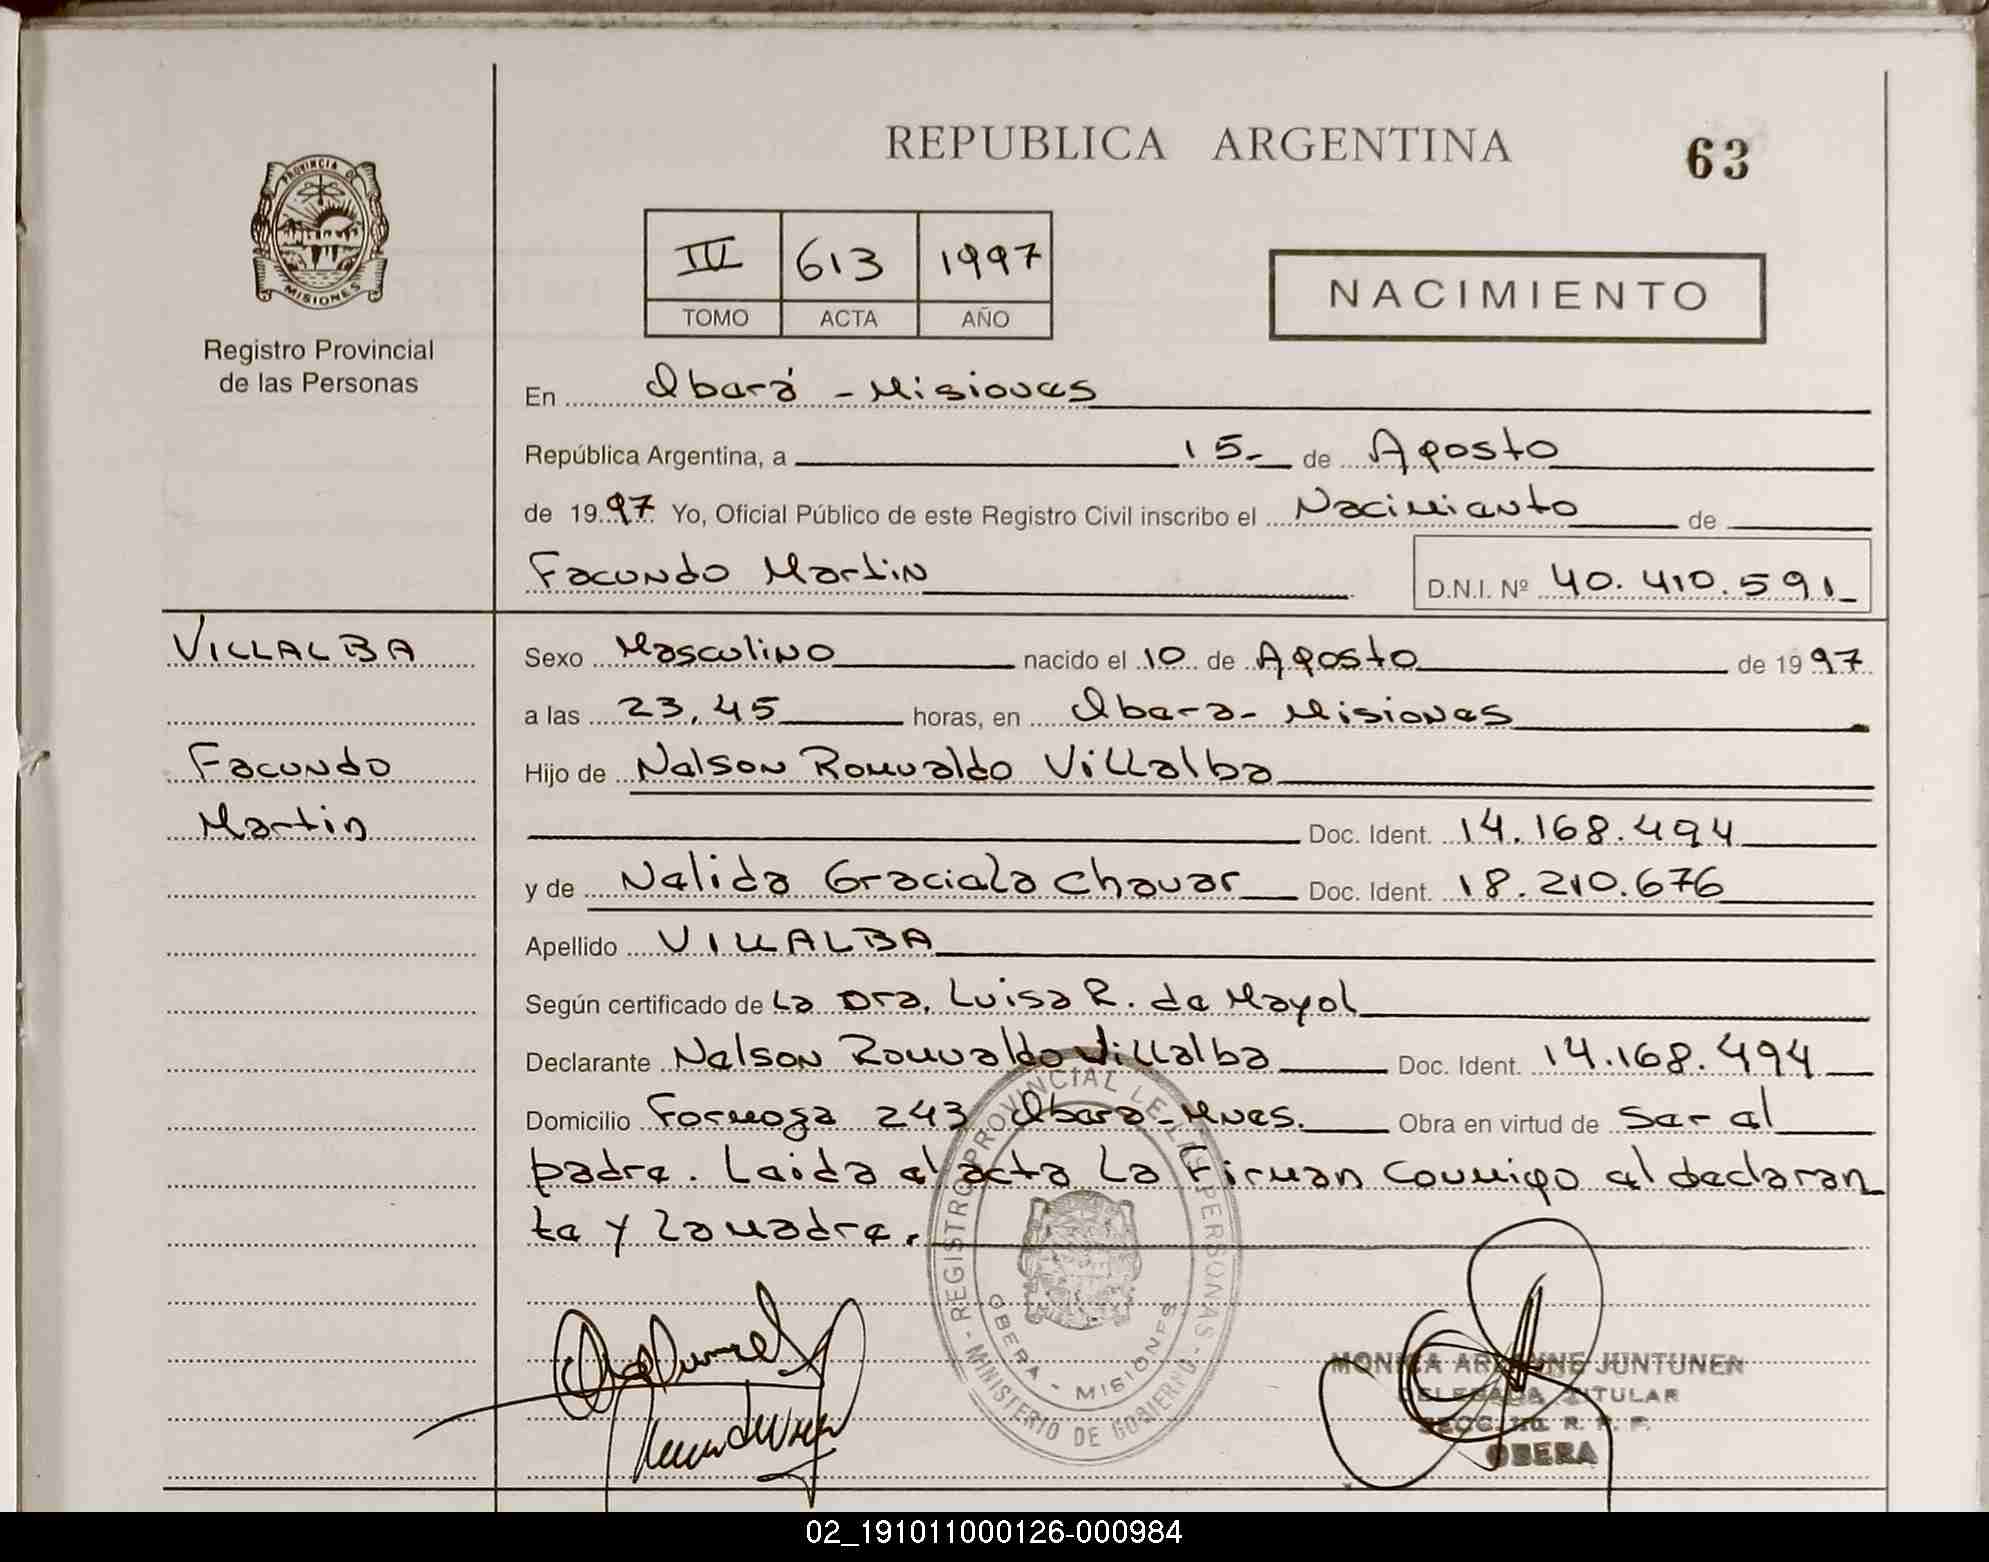 REPUBLICA ARGENTINA
63
PROVINCIA DE
MISIONES
Registro Provincial
de las Personas
IV 613 1997
TOMO ACTA AÑO
NACIMIENTO
En Oberá - Misiones
República Argentina, a 15- de Agosto
de 19 97 Yo, Oficial Público de este Registro Civil inscribo el Nacimiento de
Facundo Martin D.N.I. Nº 40.410.591
VILLALBA
Facundo
Martin
Sexo Masculino nacido el 10 de Agosto de 19 97
a las 23,45 horas, en Obera - Misiones
Hijo de Nelson Romualdo Villalba
Doc. Ident. 14.168.494
y de Nelida Graciela Chaver Doc. Ident. 18.210.676
Apellido VILLALBA
Según certificado de La Dra. Luisa R. de Mayol
Declarante Nelson Romualdo Villalba Doc. Ident. 14.168.494
Domicilio Formosa 243 Obera - Mnes. Obra en virtud de ser el
padre. Leida el acta La Firman Conmigo el declaran
te y la madre.
REGISTRO PROVINCIAL DE LAS PERSONAS
MINISTERIO DE GOBIERNO
OBERA - MISIONES
JUNTUNEN
DELEGADA TITULAR
R. P. P.
OBERA
02_191011000126-000984